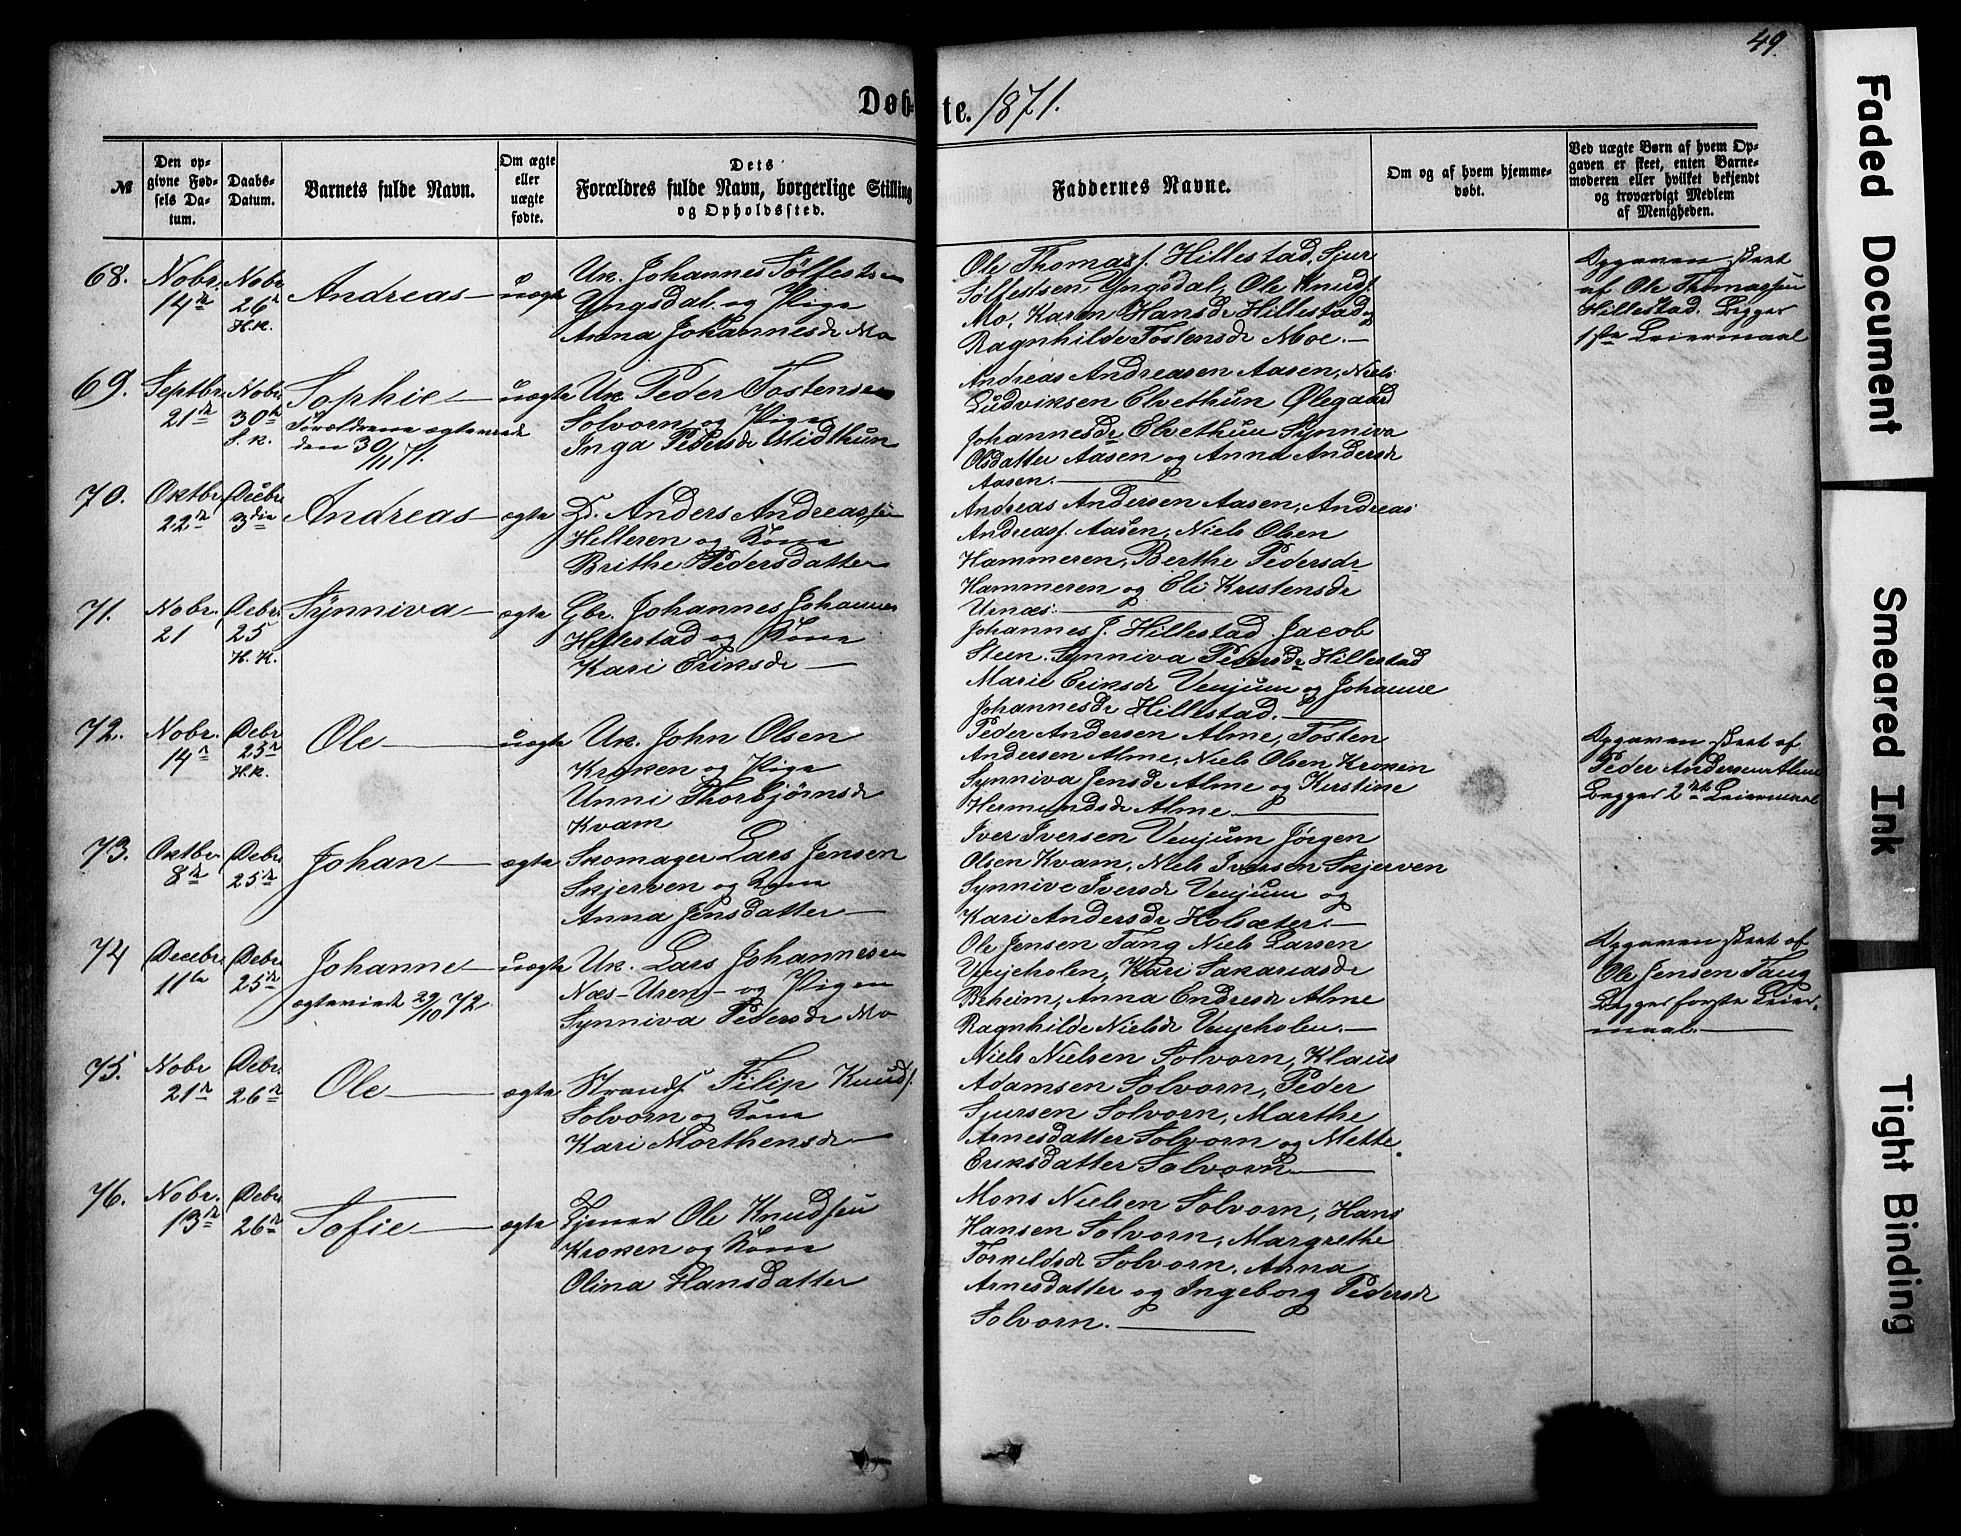 49.
Døb-te. 1871.
№
Den op-
givne Fød-
sels Da-
tum.
Daabs-
Datum.
Barnets fulde Navn.
Om ægte
eller
uægte
fødte.
Dets
Forældres fulde Navn, borgerlige Stilling
og Opholdssted.
Faddernes Navne.
Om og af hvem hjemme-
døbt.
Ved uægte Børn af hvem Op-
gaven er skeet, enten Barne-
moderen eller hvilket bekjendt
og troværdigt Medlem
af Menigheden.
68.
Nobr.
14de
Nobr
26
H.K.
Andreas
uægte
Uk. Johannes Sølfestsen
Yngsdal og Pige
Anna Johannesdr Mo
Ole Thomasf. Hillestad, Sjur
Sølfestsen Yngsdal, Ole Knudf.
Mo, Karen Hansdr Hillestad og
Ragnhilde Tostensdr Moe.
Opgaven skeet
af Ole Thomassen
Hillestad. Begges
1ste Leiermaal
69.
Septbr.
21de
Nobr
30te
S.K.
Sophie
Forældrene ægteviede
den 30/11 71.
uægte
Uk. Peder Tostensen
Solvorn og Pige
Inga Pedersdr Midthun
Andreas Andreasen Aasen, Niels
Ludviksen Elvethun Ølegaard
Johannesdr Elvethun Synniva
Olsdatter Aasen og Anna Andersdr
Aasen.
70.
Oktbr.
22de
Decbr
3die
Andreas
ægte
Anders Andreassen
Helleren og Kone
Brithe Pedersdatter
Andreas Andersen Aasen, Andreas
Andreasf. Aasen, Niels Olsen
Hammeren, Berthe Pedersdr
Hammeren og Eli Kristensdr
Urnæs.
71.
Nobr.
21
Debr.
25
H.K.
Synniva
ægte
Gbr. Johannes Johannes
Hillestad og Kone
Kari Eriksdr
Johannes J. Hillestad. Jacob
Steen. Synniva Pedersdr Hillestad
Marie Eriksdr Venjum og Johanne
Johannesdr Hillestad.
72.
Nobr.
14de
Debr
25de
H.K.
Ole
uægte
Uk. John Olsen
Kroken og Pige
Unni Thorbjørnsdr
Kvam
Peder Andersen Alme, Tosten
Andersen Alme, Niels Olsen Kroken
Synniva Jensdr Alme og Kirstine
Hermundsdr Alme
Opgaven skeet af
Peder Andersen Alme
Begges 2det Leiermaal
73.
Oktbr.
8de
Debr
25de
Johan
ægte
Skomager Lars Jensen
Skjerven og Kone
Anna Jensdatter
Iver Iversen Venjum Jørgen
Olsen Kvam, Niels Iversen Skjerven
Synnive Iversdr Venjum og
Kari Andersdr Holsæter.
74
Decebr
11te
Debr
25de
Johanne
ægteviede 29/10 72.
uægte
Uk. Lars Johannesen
Næs-Uren og Pigen
Synniva Pedersdr Mo
Ole Jensen Tang Niels Larsen
Venjeholen, Kari Sakariasdr
Beheim, Anna Endresdr Alme
Ragnhilde Nielsdr Venjeholen.
Opgaven skeet af
Ole Jensen Tang
Begges første Leier-
maal.
75.
Nobr
21de
Debr
26de
Ole
ægte
Strands. Filip Knuds.
Solvorn og Kone
Kari Morthensdr
Niels Nielsen Solvorn, Klaus
Adamsen Solvorn, Peder
Sjursen Solvorn, Marthe
Arnesdatter Solvorn og Mette
Eriksdatter Solvorn
76.
Nobr.
13de
Debr.
26de
Sofie
ægte
Tjener Ole Knudsen
Kroken og Kone
Olina Hansdatter
Mons Nielsen Solvorn, Hans
Hansen Solvorn, Margrethe
Torkeldsdr Solvorn, Anna
Arnesdatter og Ingeborg Pedersdr
Solvorn.
Faded Document
Smeared Ink
Tight Binding